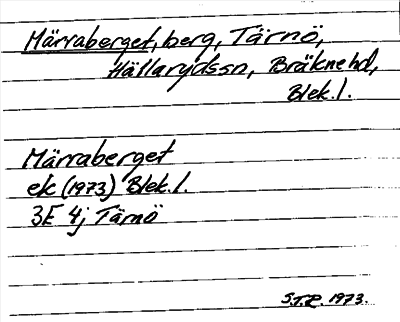 Märraberget, berg, Tärnö,
Hällarydssn, Bräknehd,
Blek. l.
Märraberget
ek (1973) Blek. l.
3E 4j Tärnö
S.T.R. 1973.